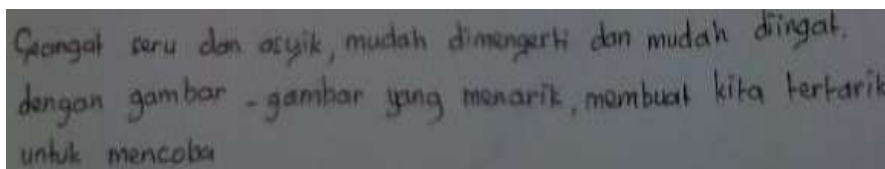 Sangat seru dan asyik, mudah dimengerti dan mudah diingat.
dengan gambar - gambar yang menarik, membuat kita tertarik
untuk mencoba